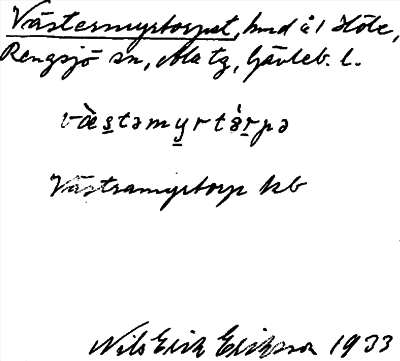 Västermyrtorpet, hmd å 1 Höle,
Rengsjö sn, Ala tg, Gävleb. l.
væ̀stəmyrtårpə
Västramyrtorp kb
Nils Erik Eriksson 1933